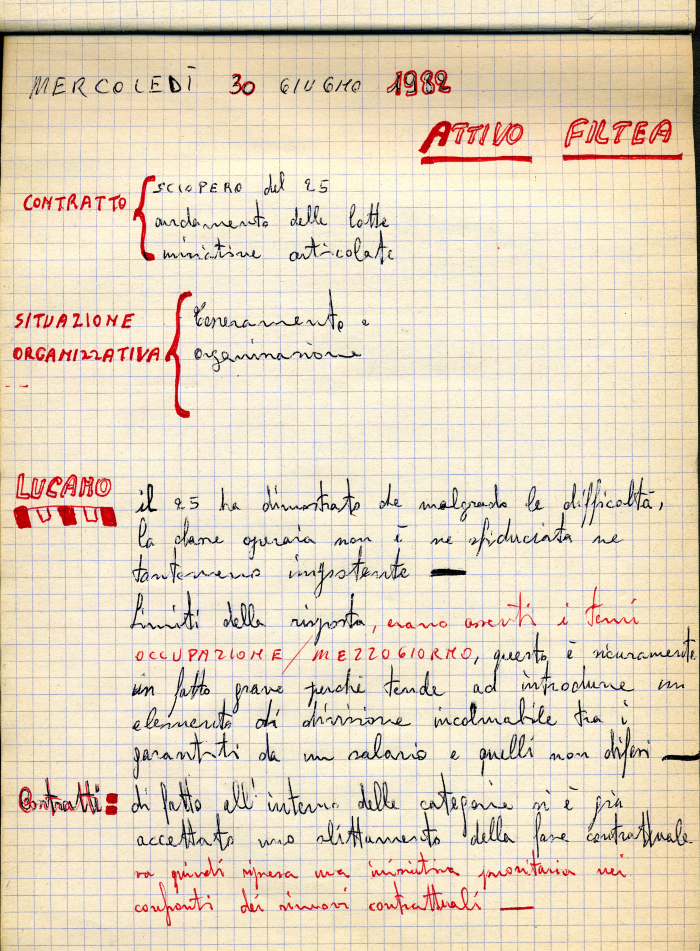 MERCOLEDÌ 30 GIUGNO 1982
ATTIVO FILTEA
CONTRATTO
SCIOPERO del 25
andamento delle lotte
iniziative articolate
SITUAZIONE
ORGANIZZATIVA
Tesseramento e
organizzazione
LUCANO
il 25 ha dimostrato che malgrado le difficoltà,
la classe operaia non è ne sfiduciata ne
tantomeno impotente —
Limiti della risposta, erano assenti i temi
OCCUPAZIONE / MEZZOGIORNO, questo è sicuramente
un fatto grave perché tende ad introdurre un
elemento di divisione incolmabile tra i
garantiti da un salario e quelli non difesi —
Contratti:
di fatto all'interno delle categorie si è già
accettato uno slittamento della fase contrattuale
va quindi ripresa una iniziativa prioritaria nei
confronti dei rinnovi contrattuali —